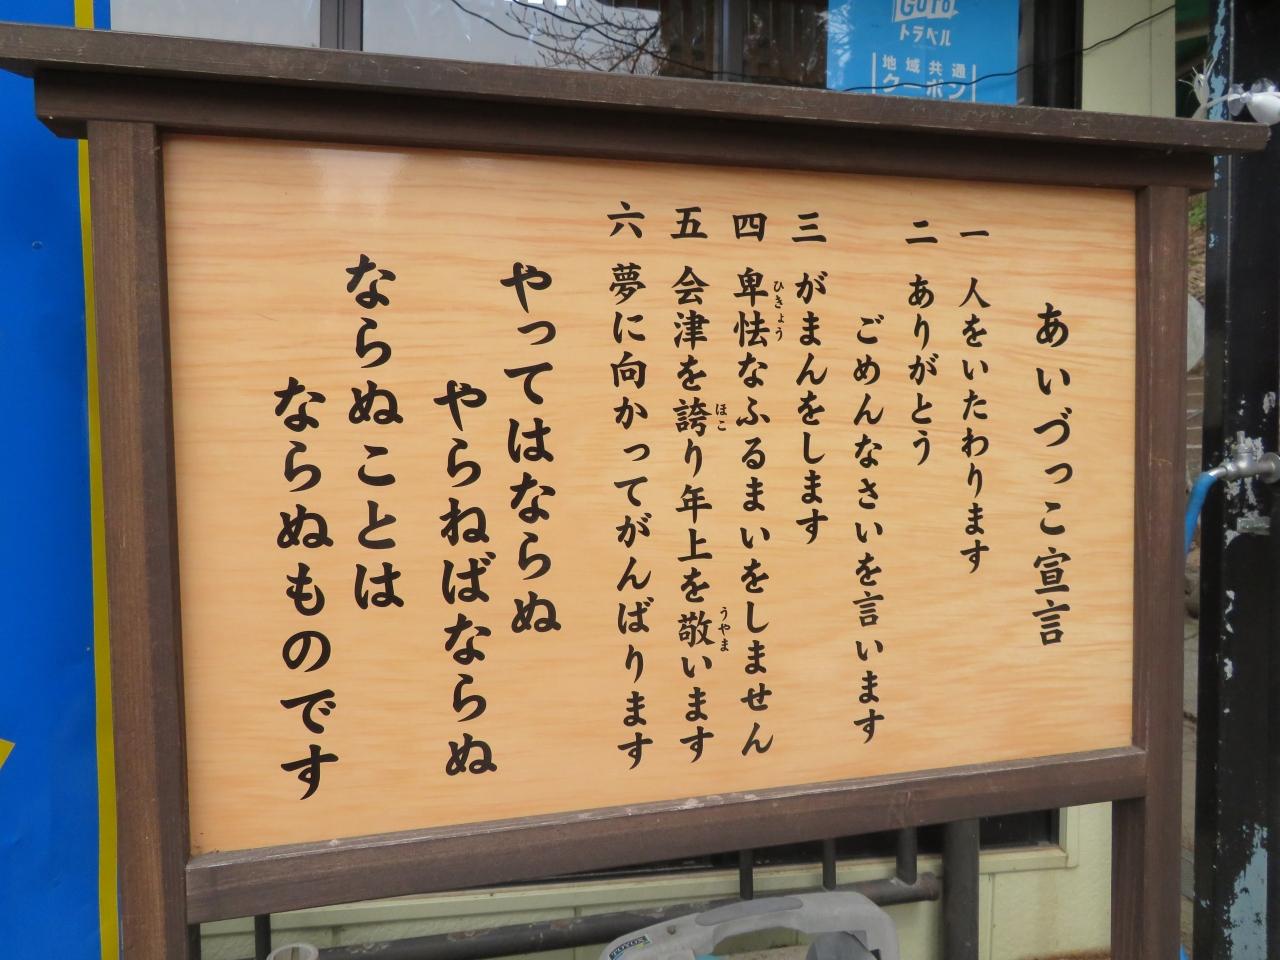 あいづっこ宣言
一 人をいたわります
二 ありがとう
ごめんなさいを言います
三 がまんをします
四 卑怯なふるまいをしません
ひきょう
五 会津を誇り年上を敬います
ほこ
うやま
六 夢に向かってがんばります
やってはならぬ
やらねばならぬ
ならぬことは
ならぬものです
GoTo
トラベル
地域共通
クーポン